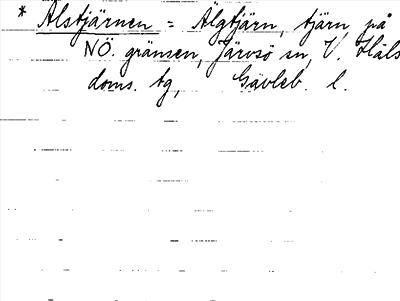 * Älstjärnen = Älgtjärn, tjärn på
NÖ. gränsen, Järvsö sn, V. Häls
doms. tg, Gävleb. l.